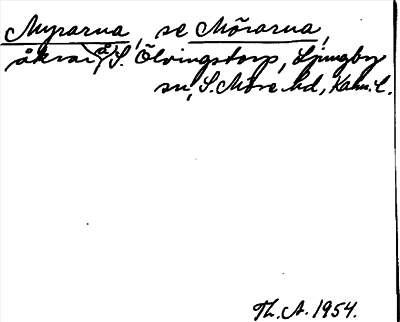 Myrarna, se Mörarna,
åkrar å S. Ölvingstorp, Ljungby
sn, S. Möre hd, Kalm. l.
Th. A. 1954.